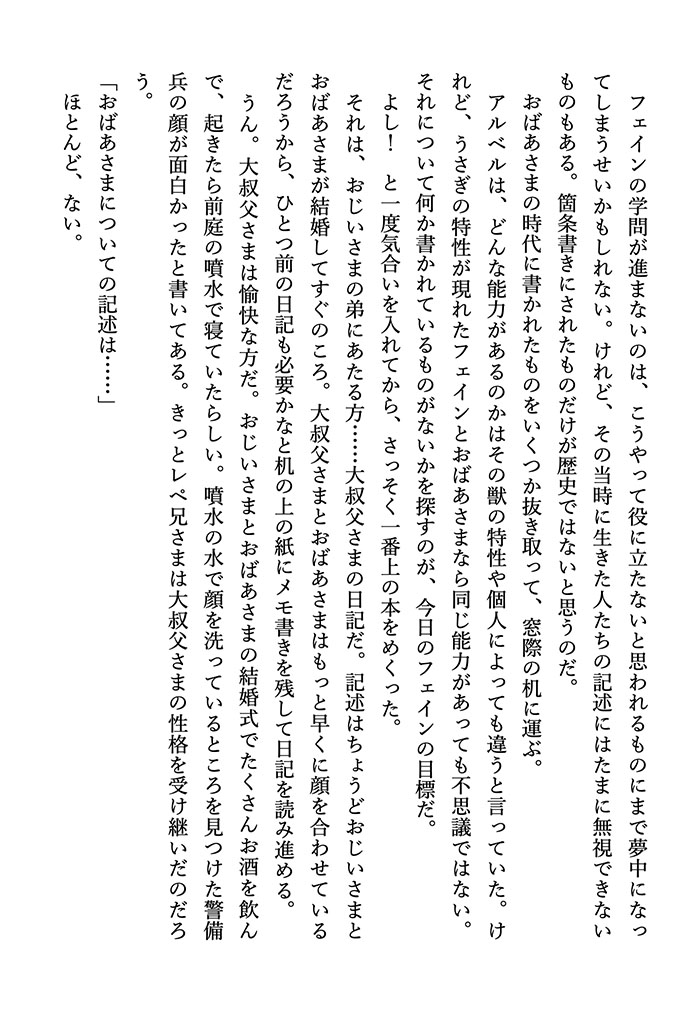 フェインの学問が進まないのは、こうやって役に立たないと思われるものにまで夢中になっ
てしまうせいかもしれない。けれど、その当時に生きた人たちの記述にはたまに無視できない
ものもある。箇条書きにされたものだけが歴史ではないと思うのだ。
　おばあさまの時代に書かれたものをいくつか抜き取って、窓際の机に運ぶ。
　アルベルは、どんな能力があるのかはその獣の特性や個人によっても違うと言っていた。け
れど、うさぎの特性が現れたフェインとおばあさまなら同じ能力があっても不思議ではない。
それについて何か書かれているものがないかを探すのが、今日のフェインの目標だ。
　よし！　と一度気合いを入れてから、さっそく一番上の本をめくった。
　それは、おじいさまの弟にあたる方……大叔父さまの日記だ。記述はちょうどおじいさまと
おばあさまが結婚してすぐのころ。大叔父さまとおばあさまはもっと早くに顔を合わせている
だろうから、ひとつ前の日記も必要かなと机の上の紙にメモ書きを残して日記を読み進める。
　うん。大叔父さまは愉快な方だ。おじいさまとおばあさまの結婚式でたくさんお酒を飲ん
で、起きたら前庭の噴水で寝ていたらしい。噴水の水で顔を洗っているところを見つけた警備
兵の顔が面白かったと書いてある。きっとレペ兄さまは大叔父さまの性格を受け継いだのだろ
う。
「おばあさまについての記述は……」
　ほとんど、ない。